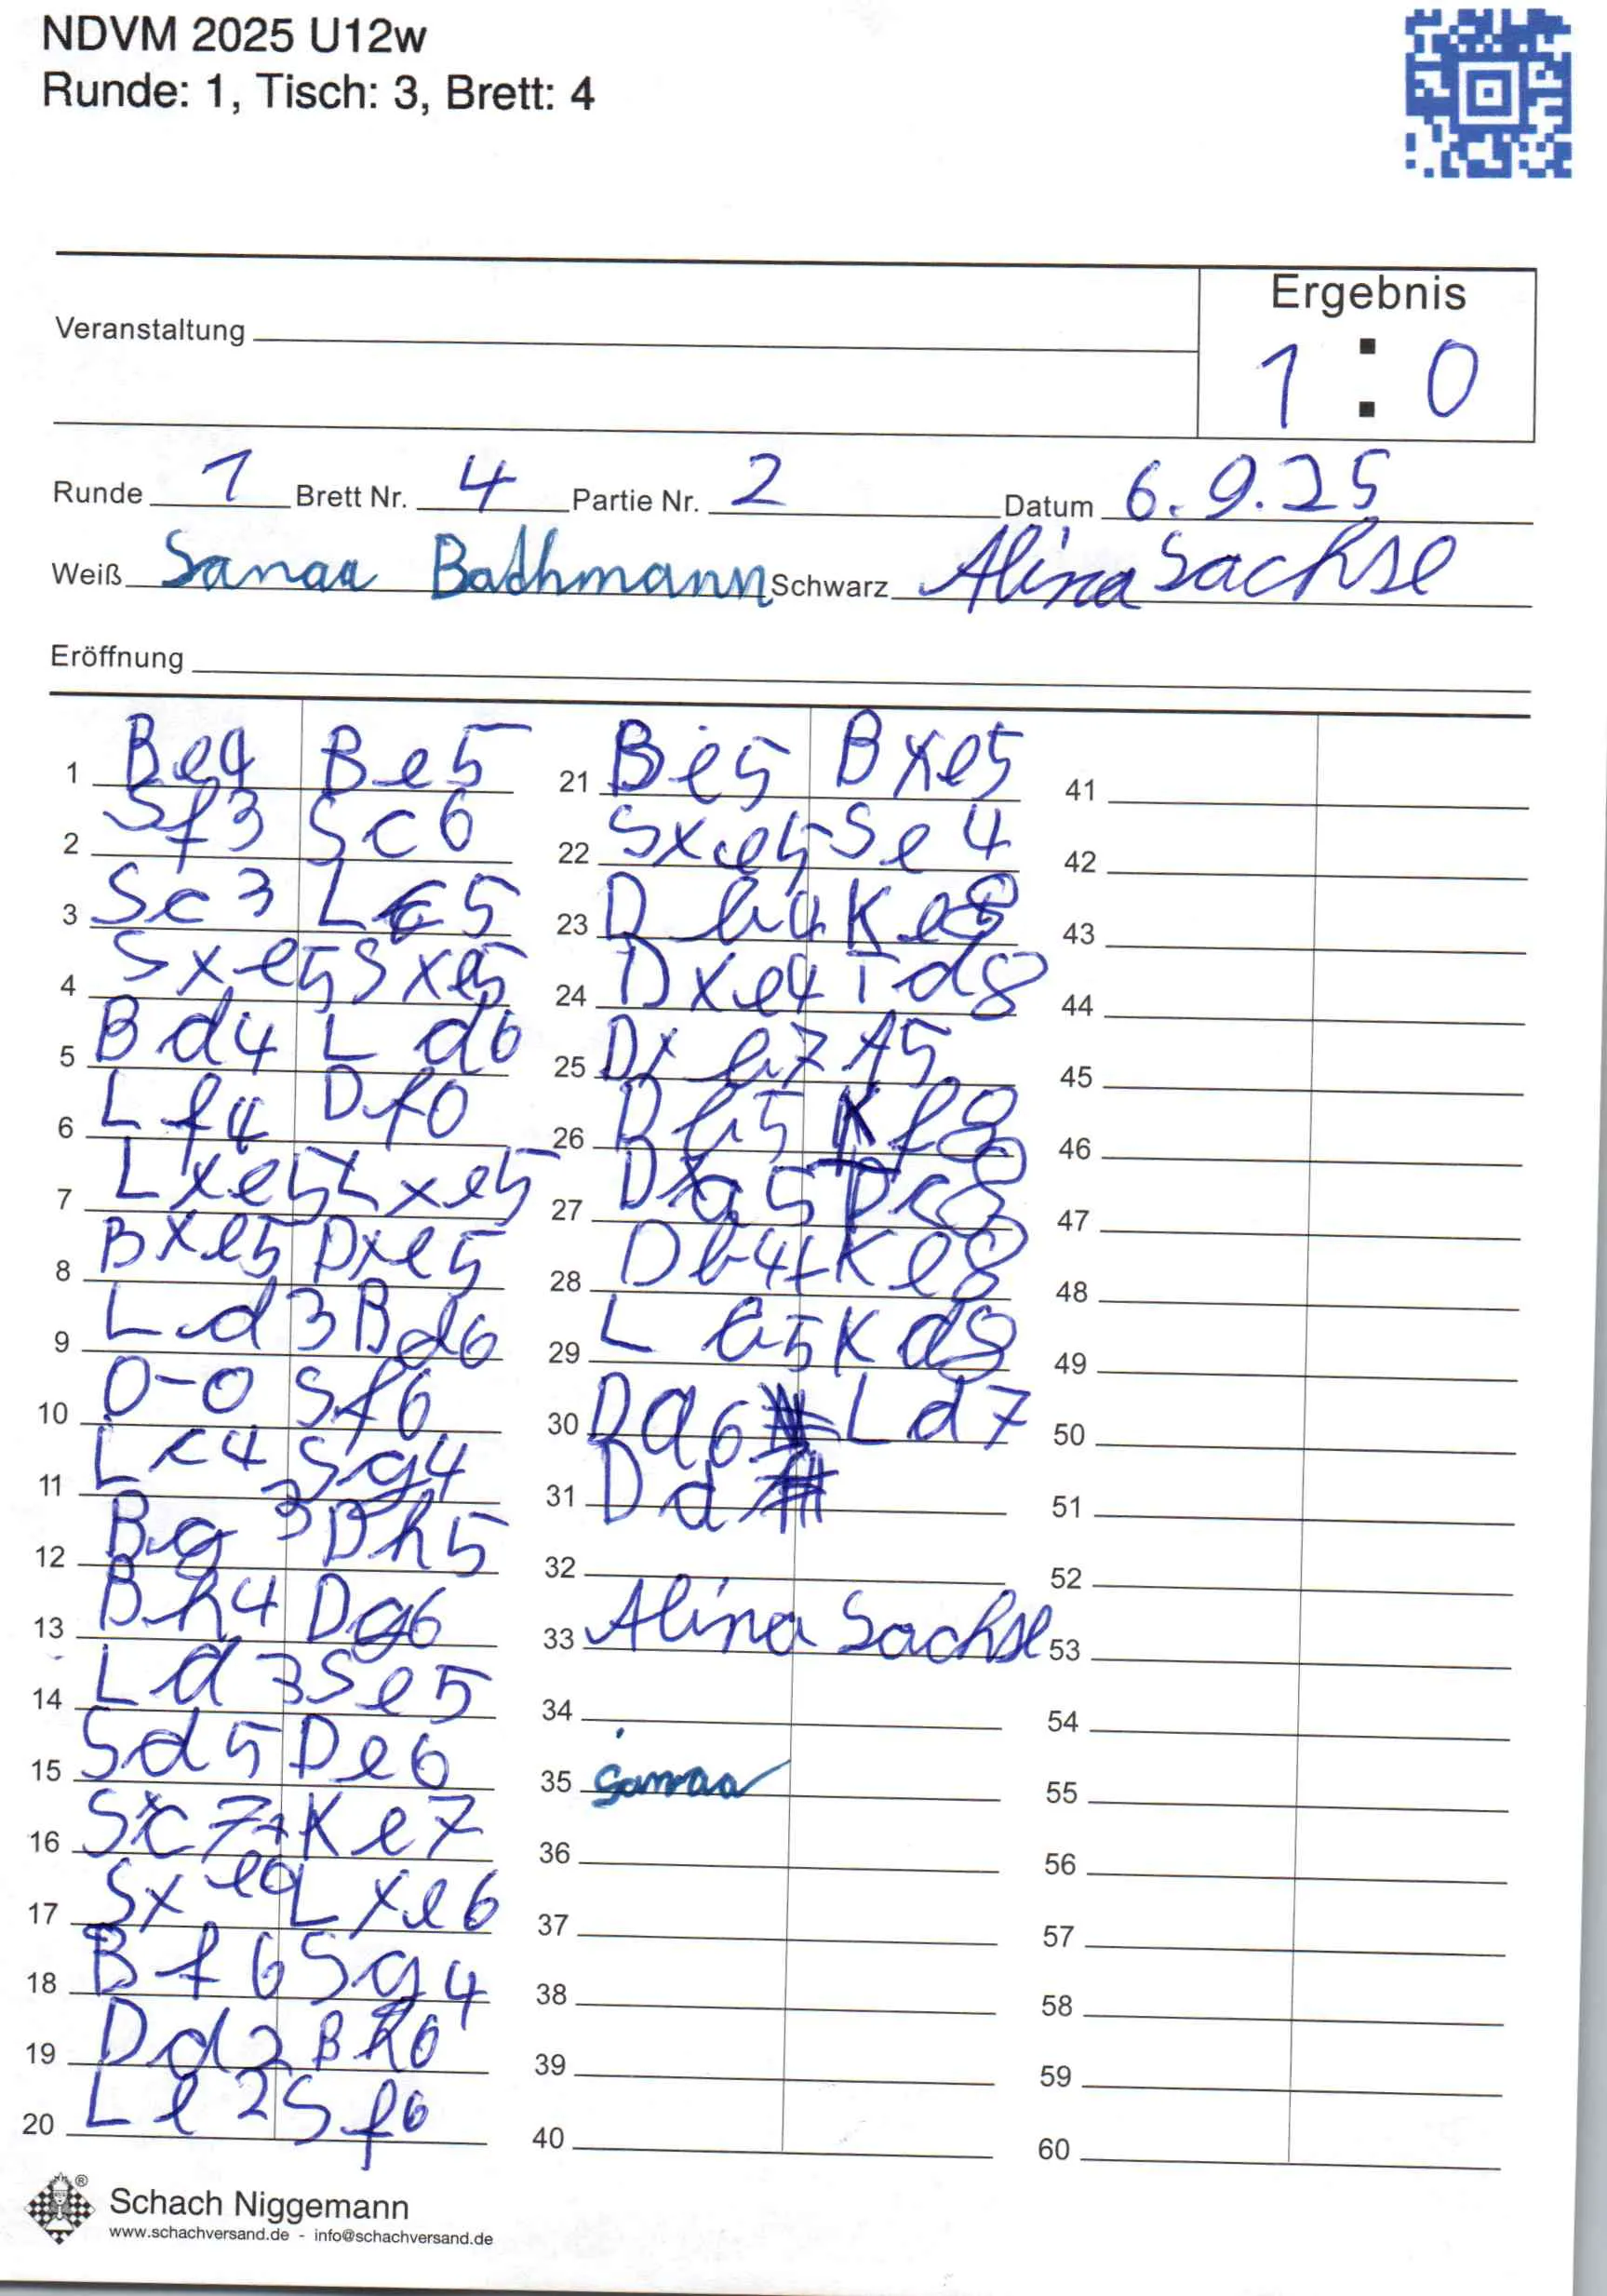 NDVM 2025 U12w
Runde: 1, Tisch: 3, Brett: 4
Ergebnis
Veranstaltung
1 : 0
Runde 1 Brett Nr. 4 Partie Nr. 2 Datum 6.9.25
Weiß Sanaa Bathmann Schwarz Alina Sachse
Eröffnung
1 Be4 Be5
2 Sf3 Sc6
3 Sc3 Lc5
4 Sxe5 Sxe5
5 Bd4 Ld6
6 Lf4 Df6
7 Lxe5 Lxe5
8 Bxe5 Dxe5
9 Ld3 Bd6
10 0-0 Sf6
11 Lc4 Sg4
12 Bg3 Dh5
13 Bh4 Dg6
14 Ld3 Se5
15 Sd5 De6
16 Sxc7+ Ke7
17 Sxe6 Lxe6
18 Bf6 Sg4
19 Dd2 Bh6
20 Le2 Sf6
21 Be5 Bxe5
22 Sxe5 Se4
23 Db4 Ke8
24 Dxe4 Td8
25 Dxb7 f5
26 Bh5 Kf8
27 Dxa5 Dc8
28 Db4+ Ke8
29 L b5 Kd8
30 Da6 Ld7
31 Dd
32
33 Alina Sachse
34
35 Sanaa
36
37
38
39
40
41
42
43
44
45
46
47
48
49
50
51
52
53
54
55
56
57
58
59
60
Schach Niggemann
www.schachversand.de - info@schachversand.de